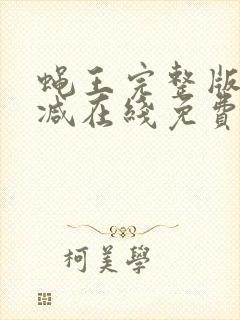 蝇王完整版
减在线免費
柯美學